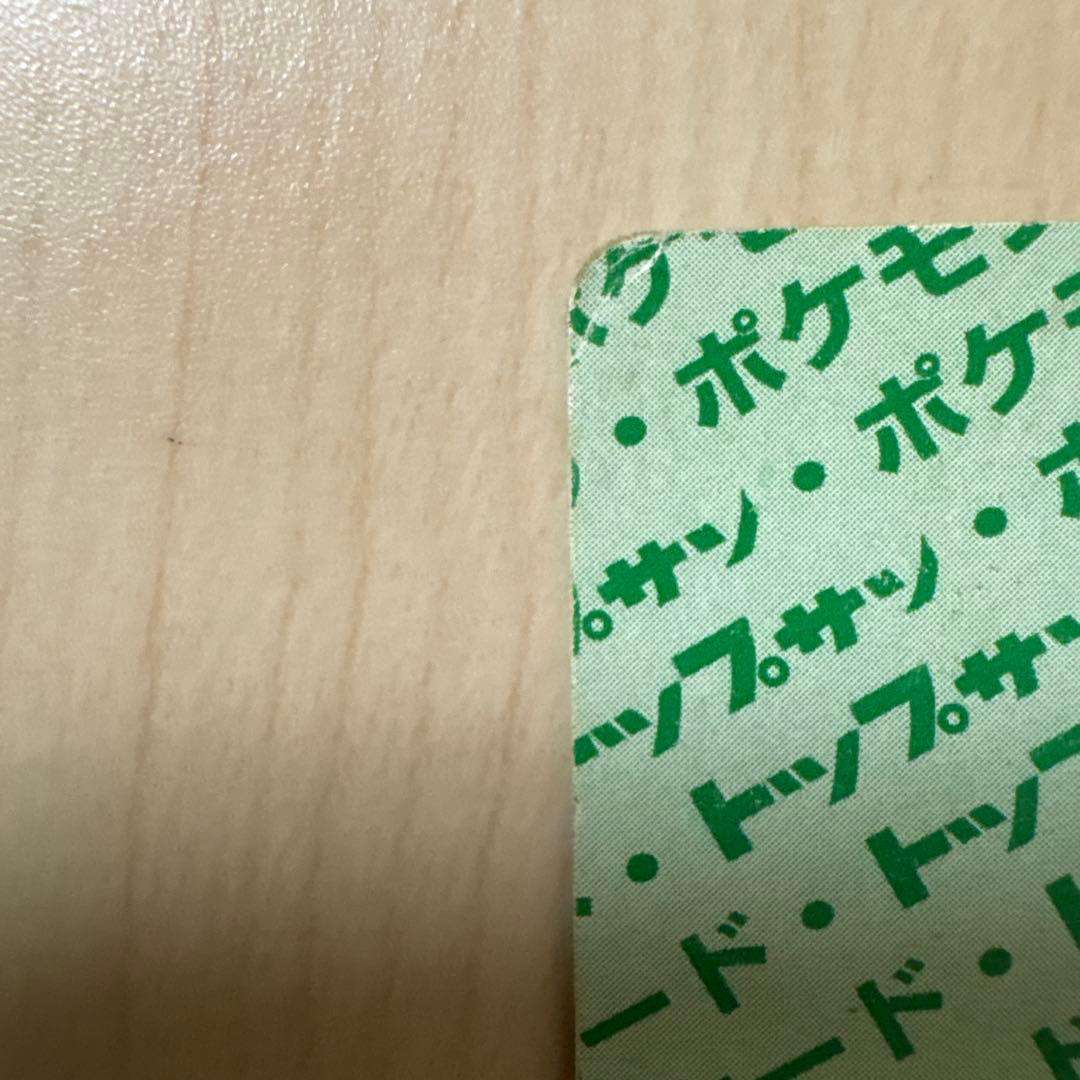 ケ
・ポケモ
プサン・ポケモ
ップサン・ポ
・トップサン
ード・トップ
ード・ト